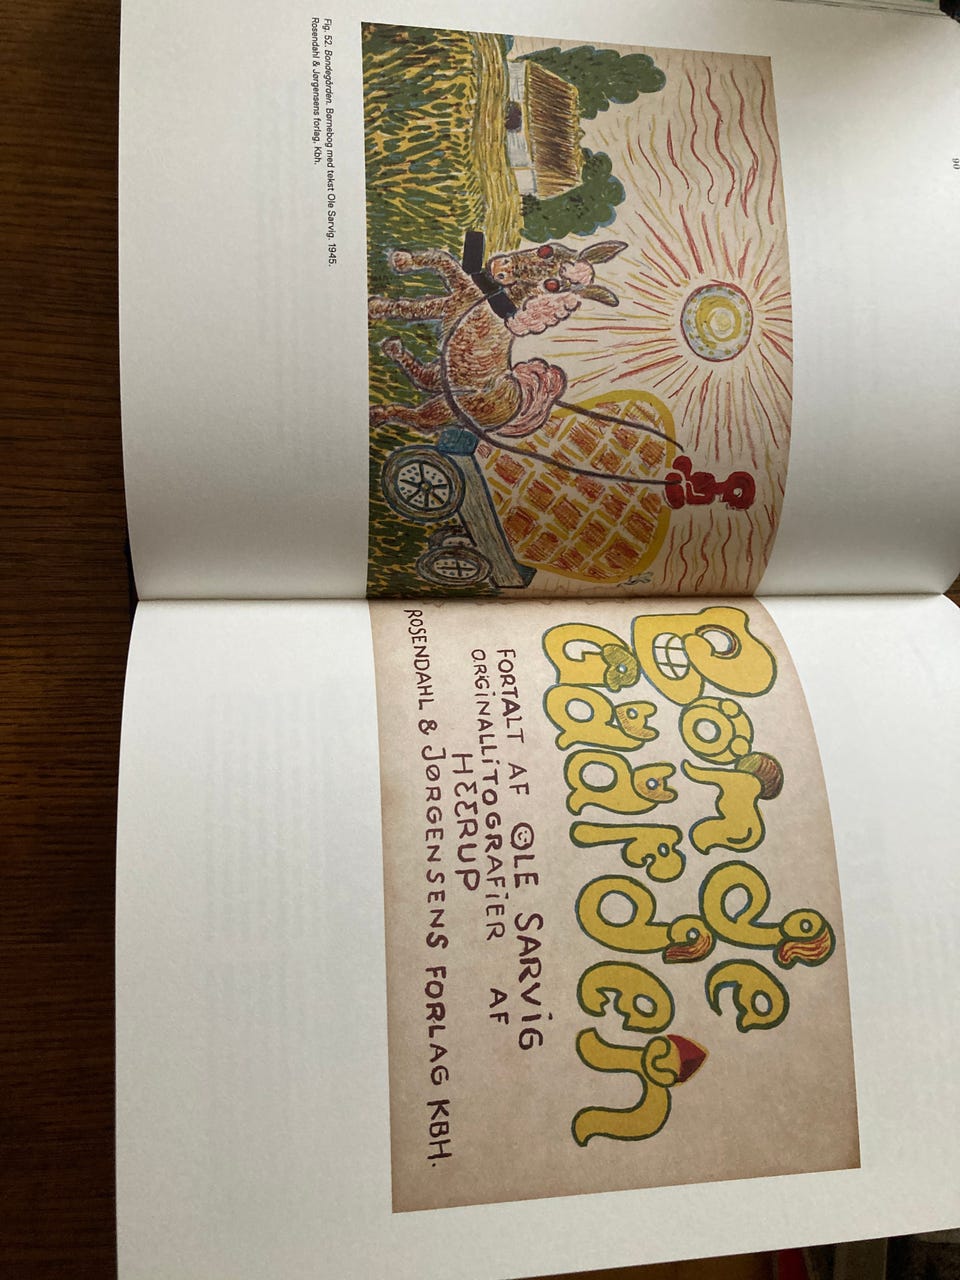 90
Fig. 52. Bondegården. Børnebog med tekst Ole Sarvig. 1945.
Rosendahl & Jørgensens forlag, Kbh.
Bonde
Gaarden
FORTALT AF OLE SARVIG
ORIGINALLITOGRAFIER AF
HEERUP
ROSENDAHL & JØRGENSENS FORLAG KBH.